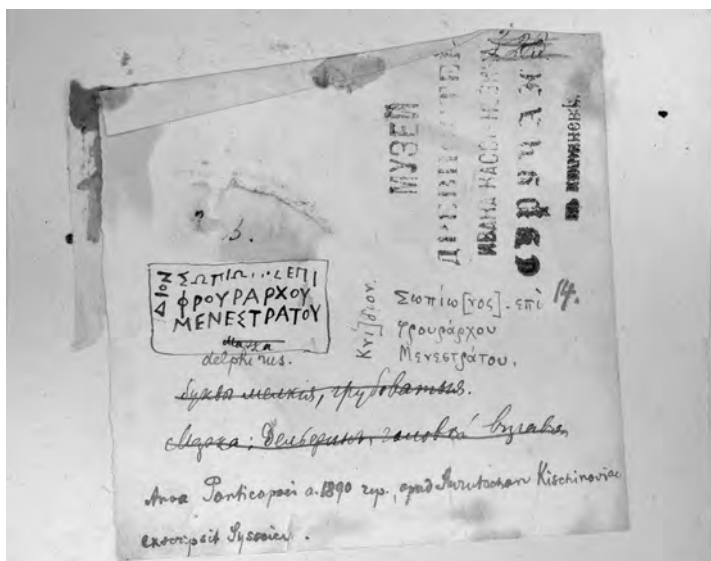 МУЗЕЙ
ДРЕВНОСТЕЙ
ИВАНА
СУРУЧАН
въ КИШИНЕВѢ.
3.
ΔΙΟΝ
ΣΩΠΙΩ...ΕΠΙ
ΦΡΟΥΡΑΡΧΟΥ
ΜΕΝΕΣΤΡΑΤΟΥ
delphinus.
Κνί]διον.
Σωπίω[νος]. ἐπί 14.
φρουράρχου
Μενεστράτου.
буквы мелкія, грубоватыя.
Дельфинъ, головой
Ansa Panticapaei a. 1890 rep., apud Surutschan Kischinoviae
exscripsit Sysoiev.